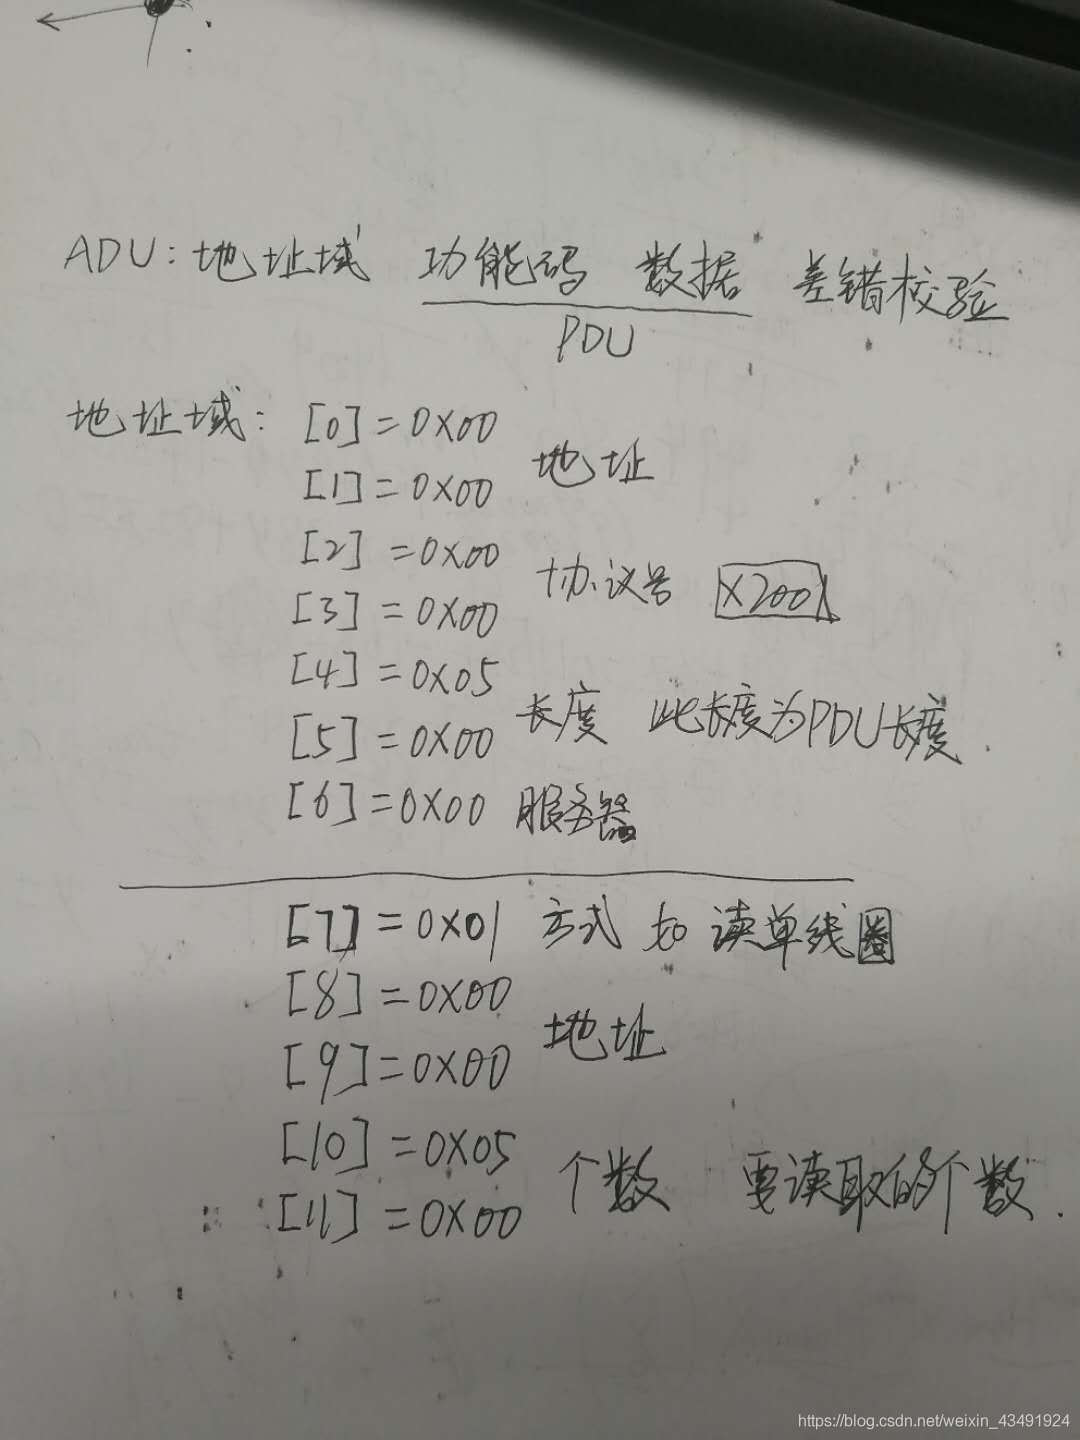 ADU: 地址域 功能码 数据 差错校验
PDU
地址域: [0]=0X00
[1]=0X00 地址
[2]=0X00
[3]=0X00 协议号 X200
[4]=0X05
[5]=0X00 长度 此长度为PDU长度.
[6]=0X00 服务器
[7]=0X01 方式 如 读单线圈
[8]=0X00
[9]=0X00 地址
[10]=0X05
[11]=0X00 个数 要读取的个数.
https://blog.csdn.net/weixin_43491924